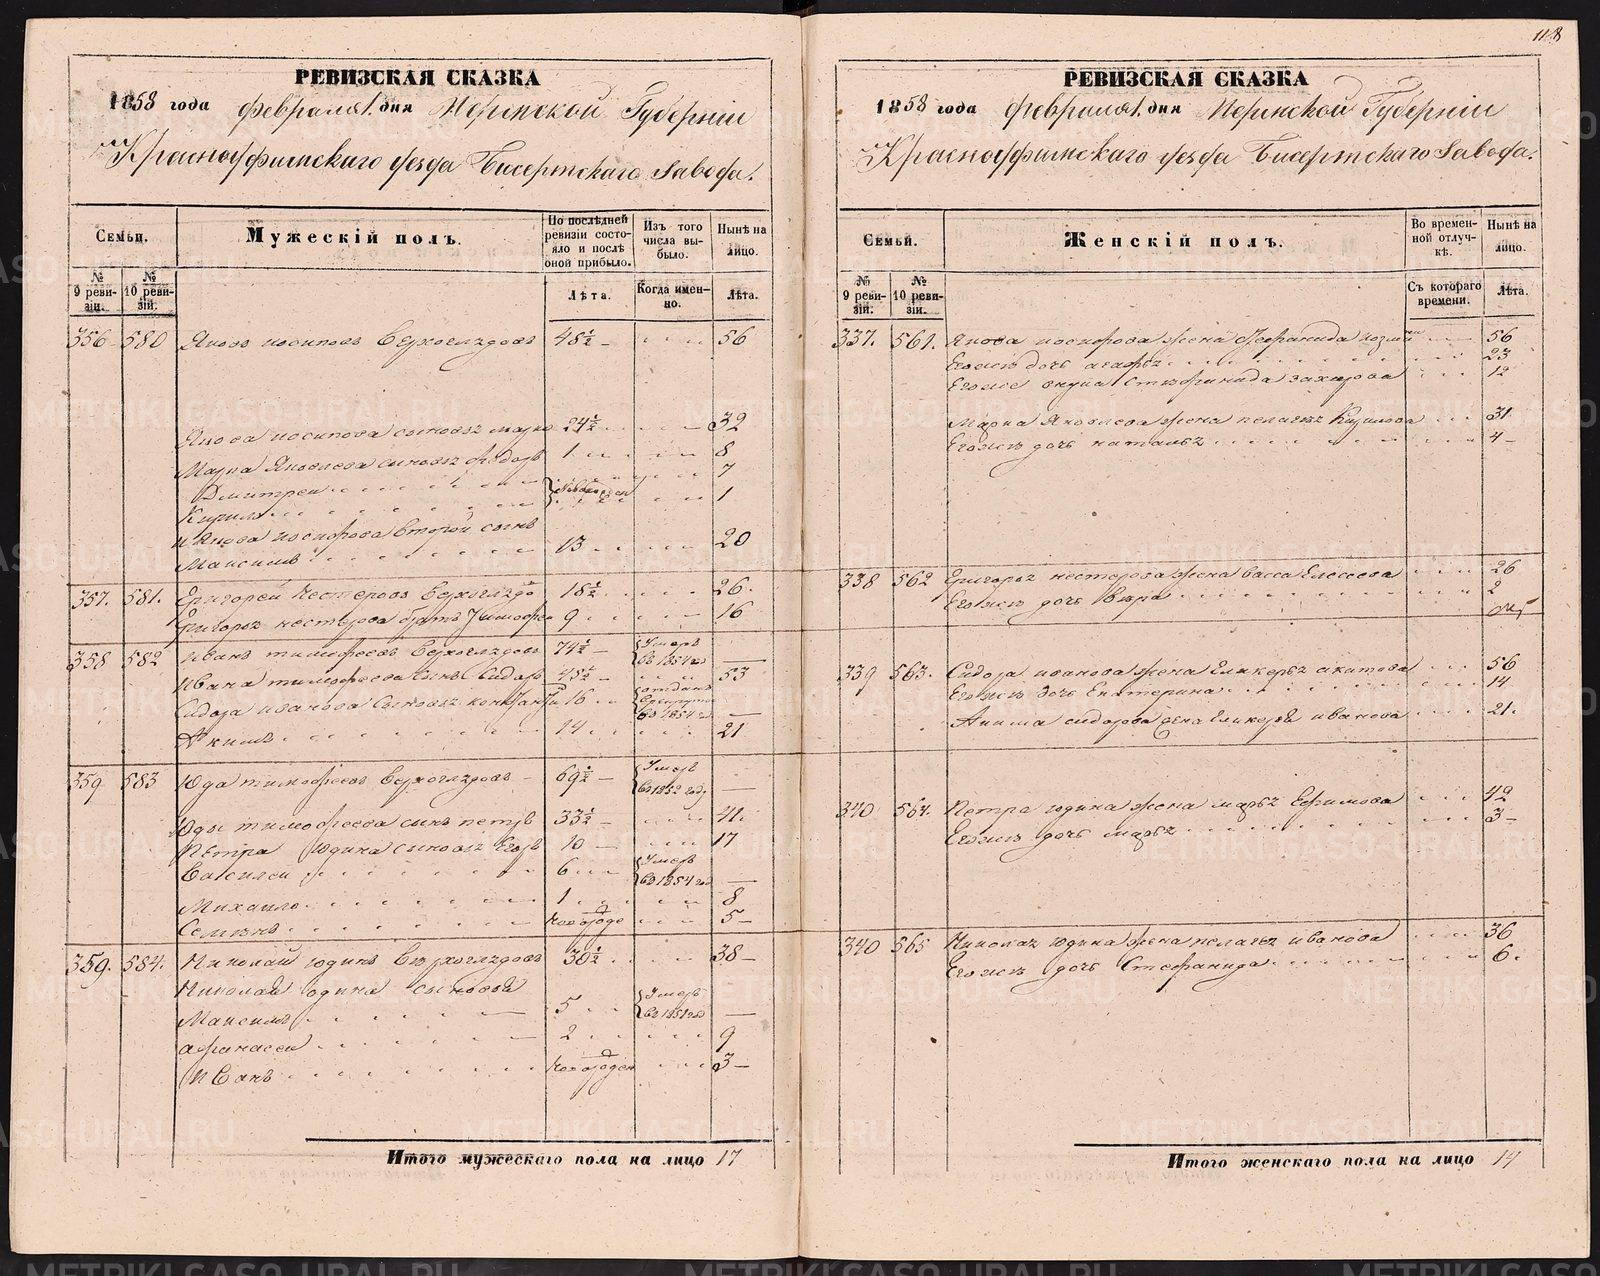 118
РЕВИЗСКАЯ СКАЗКА
1858 года февраля 1. дня Пермской Губерніи
Красноуфимскаго уезда Бисертскаго завода.
Семьи.
Мужескій полъ.
По послѣдней ревизіи состояло и послѣ оной прибыло.
Изъ того числа выбыло.
Нынѣ на лицо.
№ 9 ревизіи.
№ 10 ревизіи.
Лѣта.
Когда именно.
Лѣта.
356 580 Яковъ иосиповъ Верхоглядовъ 48½ 56
Якова иосипова сыновья марко 24½ 32
Марка Яковлева сыновья федоръ 1 8
Дмитреи 7
Кирило 1
и Якова иосифова второй сынъ
Максимъ 13 20
357. 581. Григорей Нестеровъ 18½ 26.
Григорья нестерова братъ Тимофеи 9 16
358 582 Иванъ тимофеевъ Верхоглядовъ 74½ Умеръ въ 1854
Ивана тимофеева сынъ Сидоръ 45½ 53
Сидора иванова сыновья 16 отданъ в рекруты в 1854
Акимъ 14 21
359 583 Юда тимофеевъ Верхоглядовъ 69½ Умеръ въ 1852 году
Юды тимофеева сынъ петръ 33½ 41.
Петра Юдина сыновья Егоръ 10 17
Василеи 6 Умеръ въ 1854 год
Михаило 1 8
Семенъ новорожде 5
359. 584. Николай юдинъ Верхоглядовъ 30½ 38
Николая юдина сыновья
Максимъ 5 Умеръ въ 1851
афанасеи 2 9
Иванъ новорожден 3
Итого мужескаго пола на лицо 17
РЕВИЗСКАЯ СКАЗКА
1858 года февраля 1. дня Пермской Губерніи
Красноуфимскаго уезда Бисертскаго завода.
Семьи.
Женскій полъ.
Во временной отлучкѣ.
Нынѣ на лицо.
№ 9 ревизіи.
№ 10 ревизіи.
Съ котораго времени.
Лѣта.
337. 561. Якова иосифова жена 56
Егожъ дочь агафья 23
Егоже внука Стефанида захарова 12
Марка Яковлева жена пелагея Кирилова 31
Егожъ дочь наталья 4
338 562 Григорья нестерова жена васса Елисеева 26
Егожъ дочь Вера 2
339 563. Сидора иванова жена Гликерья акитова 56
Егожъ дочь Екатерина 14
Акима сидорова жена Гликерья иванова 21.
340 564. Петра юдина жена марья Ефимова 42
Егожъ дочь марья 3
340 565 Николая юдина жена пелагея иванова 36
Егожъ дочь Стефанида 6.
Итого женскаго пола на лицо 14